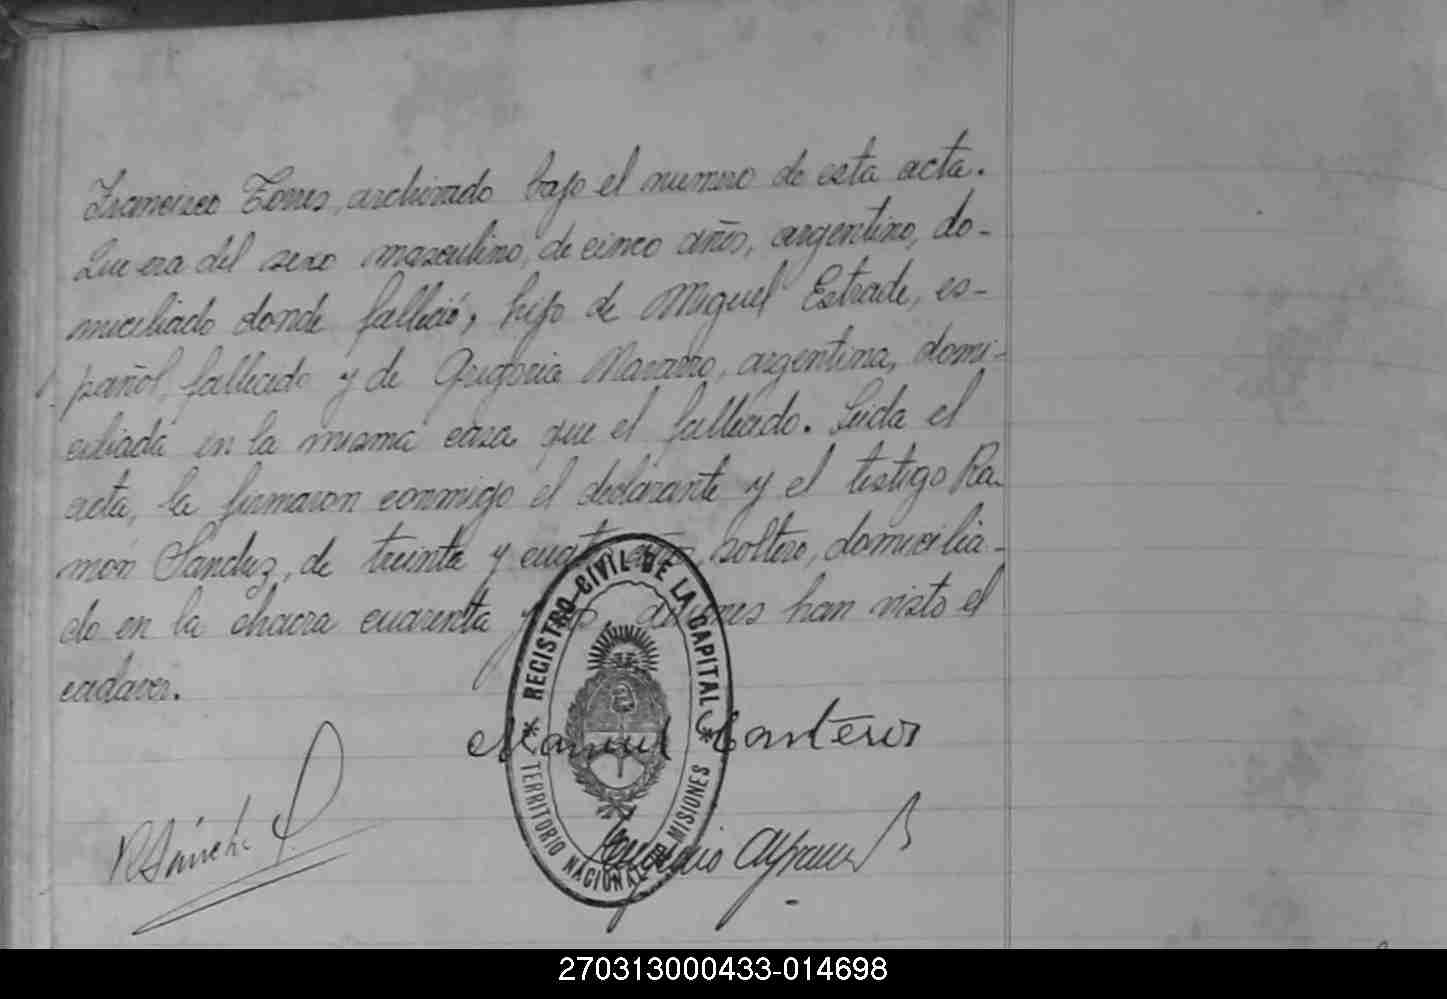 Francisco Torres, archivado bajo el numero de esta acta.
Que era del sexo masculino, de cinco años, argentino, do-
miciliado donde falleció, hijo de Miguel Estrade, es-
pañol, fallecido y de Gregoria Navarro, argentina, domi-
ciliada en la misma casa que el fallecido. Leida el
acta, la firmaron conmigo el declarante y el testigo Ra-
món Sanchez, de treinta y cuatro años, soltero, domicilia-
do en la chacra cuarenta y quienes han visto el
cadaver.
REGISTRO CIVIL DE LA CAPITAL
* TERRITORIO NACIONAL DE MISIONES *
Manuel
R Sánchez
270313000433-014698